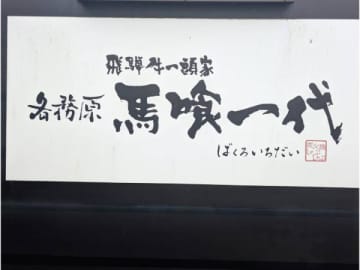 飛騨牛一頭家
各務原 馬喰一代
ばくろいちだい